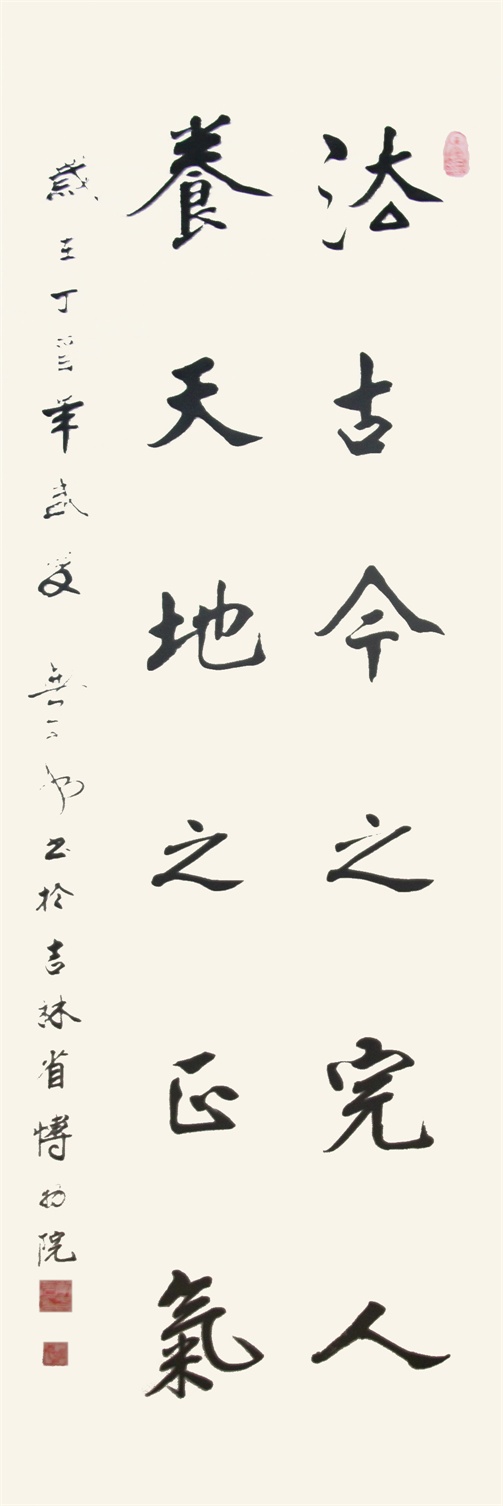 法古今之完人
養天地之正氣
歲在丁年夏書於吉林省博物院